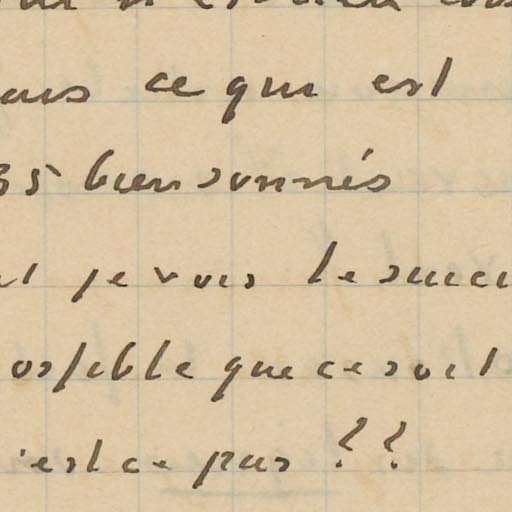 ce que est
35 bien sonnés
je vois le
possible que ce soit
n'est ce pas ??